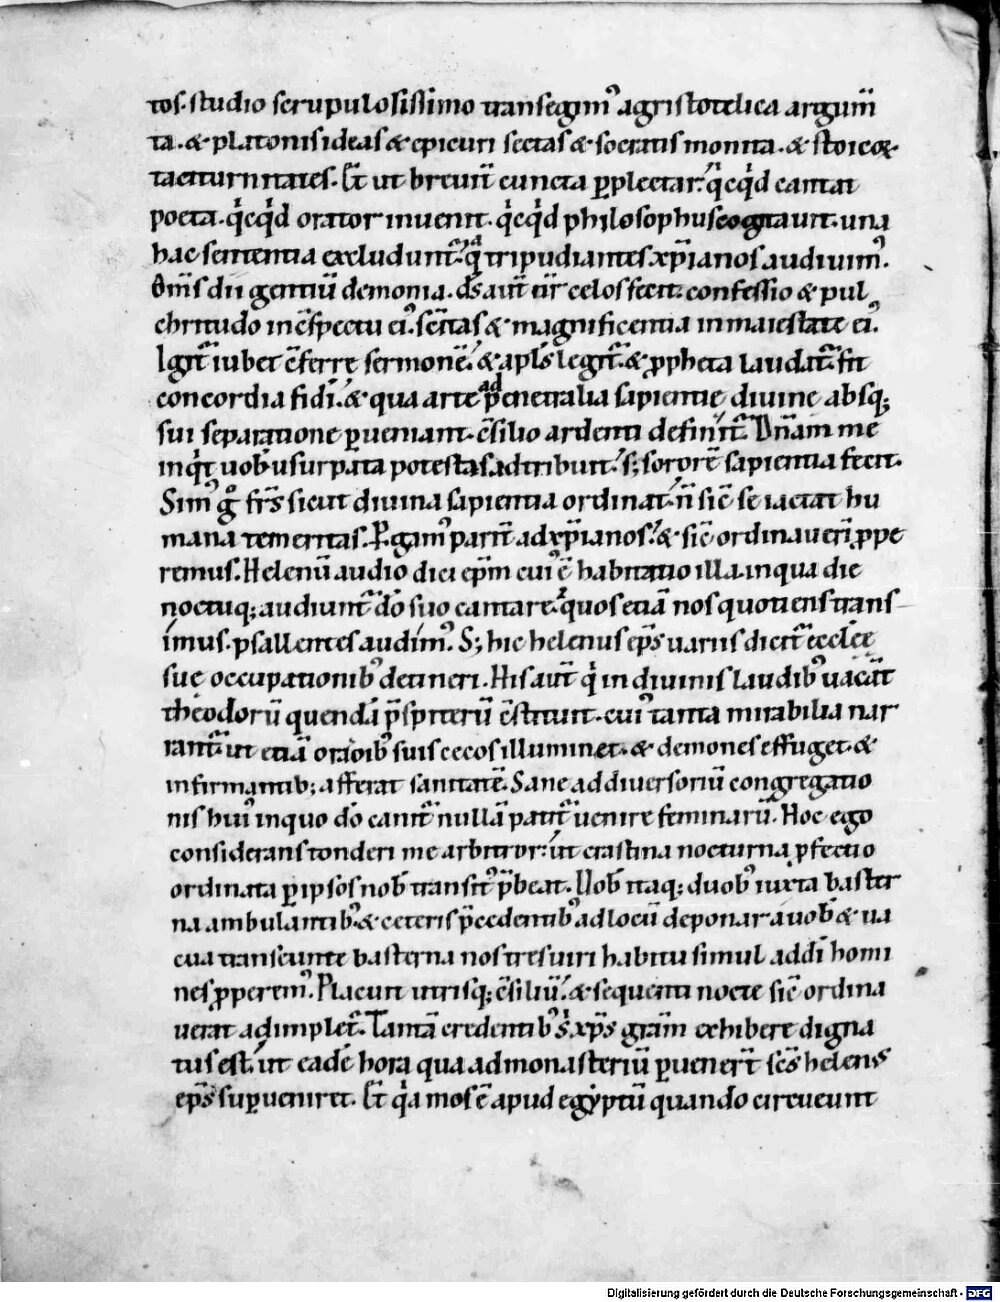 tos. studio scrupulosissimo transegim᾽ agristotelica argum̄
ta. & platonis ideas & epicuri sectas & socratis monita. & stoicoꝝ
taciturnitates. Et̄ ut breuit̄ cuncta ꝑplectar. qͥcqͥd cantat
poeta. qͥcqͥd orator inuenit. qͥcqͥd philosophus cogitauit. una
hac sententia excludunt᷑. qͣ tripudiantes xp̄ianos audiuim᾽.
Om̄s dii gentiū demonia. dn̄s aut̄ celos fecit. confessio & pul
chritudo in c̄spectu ei᾽. sc̄itas & magnificentia in maiestate ei᾽.
Igit᷑ iubet c̄ferre sermonē. & apl̄s legit᷑. & ꝓpheta laudat᷑. fit
concordia fidi. & qua arte ad penetralia sapientię diuinę absq;
sui separatione ꝑueniant. c̄silio ardenti definit᷑. Dn̄am me
inqͥt uob᾽ usurpata potestas adtribuit. s; sororē sapientia fecit.
Sim᾽ gͦ fr̄s sicut diuina sapientia ordinat. n̄ sic̄ se iactat hu
mana temeritas. Pgam᾽ parit̄ ad xp̄ianos. & sic̄ ordinauerī ꝓpe
remus. Helenū audio dici ep̄m cui᾽ ē habitatio illa. in qua die
noctuq; audiunt᷑ dō suo cantare. quos etiā nos quotiens trans
imus. psallentes audim᾽. S; hic helenus ep̄s uariis dicit᷑ ęcclesię
suę occupationib᾽ detineri. His aut̄ qͥ in diuinis laudib᾽ uacāt
theodorū quendā p̄sᵽiterū c̄stituit. cui᾽ tanta mirabilia nar
rant᷑. ut etiā orāoib᾽ suis cecos illuminet. & demones effuget. &
infirmantib; afferat sanitatē. Sane ad diuersoriū congregatio
nis hui᾽ in quo dō canit᷑ nullā patit᷑ uenire feminarū. Hoc ego
considerans tonderi me arbitror. ut crastina nocturna ꝓfectio
ordinata ꝑ ipsos nob̄ transit᾽ p̄beat. Uob᾽ itaq; duob᾽ iuxta baster
na ambulantib᾽ & ceteris p̄cedentib᾽ ad locū deponar a uob᾽ & ua
cua transeunte basterna nos tres uiri habitu simul addi homi
nes ꝓperem᾽. Placuit utrisq; c̄siliū. & sequenti nocte sic̄ ordina
uerat adimplet᷑. Tantā credentib᾽ sͥ. xp̄s grām exhibere digna
tus est. ut eadē hora qua ad monasteriū ꝑuener̄t sc̄s helenus
ep̄s suꝑueniret. Et̄ qͥa mos ē apud egẏptū quando circueunt
Digitalisierung gefördert durch die Deutsche Forschungsgemeinschaft - DFG